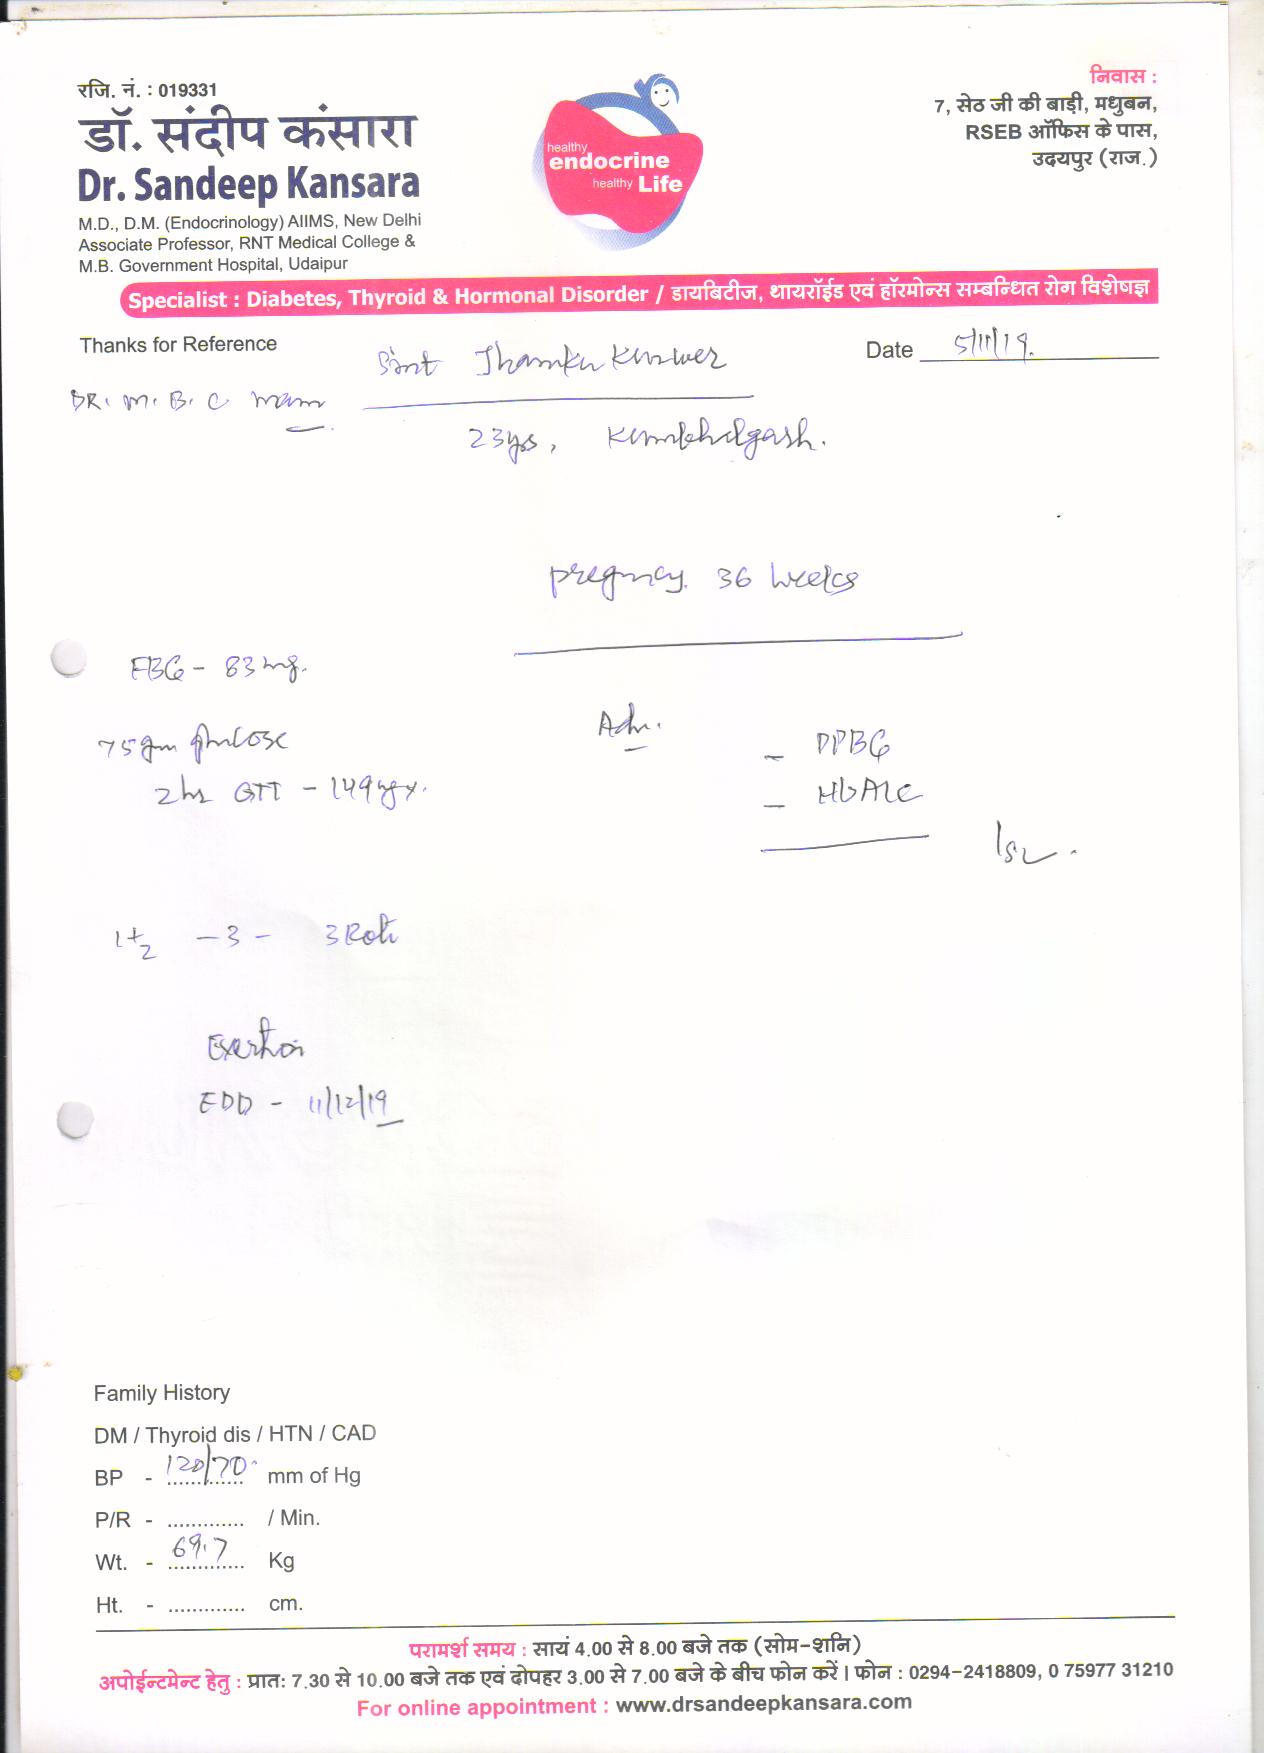 रजि. नं. : 019331
डॉ. संदीप कंसारा
Dr. Sandeep Kansara
M.D., D.M. (Endocrinology) AIIMS, New Delhi
Associate Professor, RNT Medical College &
M.B. Government Hospital, Udaipur
healthy
endocrine
healthy Life
निवास :
7, सेठ जी की बाड़ी, मधुबन,
RSEB ऑफिस के पास,
उदयपुर (राज.)
Specialist : Diabetes, Thyroid & Hormonal Disorder / डायबिटीज, थायरॉईड एवं हॉरमोन्स सम्बन्धित रोग विशेषज्ञ
Thanks for Reference
Date 5/11/19.
DR. M. B. C. mam
23yrs,
pregncy. 36 weeks
FBG - 83 mg.
75 gm glucose
2hr GTT - 149
Adv.
- PPBG
- HbA1c
- 3 - 3 Roti
EDD - 11/12/19
Family History
DM / Thyroid dis / HTN / CAD
BP - 120/70 mm of Hg
P/R - ............. / Min.
Wt. - 69.7 Kg
Ht. - ............. cm.
परामर्श समय : सायं 4.00 से 8.00 बजे तक (सोम-शनि)
अपोईन्टमेन्ट हेतु : प्रात: 7.30 से 10.00 बजे तक एवं दोपहर 3.00 से 7.00 बजे के बीच फोन करें । फोन : 0294-2418809, 0 75977 31210
For online appointment : www.drsandeepkansara.com